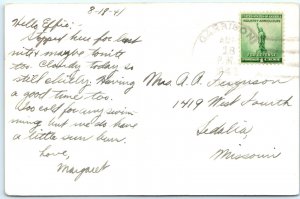 8-18-41
Hello Effie:-
Stopped here for last
nite & maybe tonite
too. Cloudy today so
still chilly. Having
a good time too.
Too cold for any swim-
ming, but we do have
a little sun burn.
Love,
Margaret
GARRISON
18
INDUSTRY AGRICULTURE
FOR DEFENSE
Mrs. A. A. Ferguson
1419 West Fourth
Sedalia,
Missouri